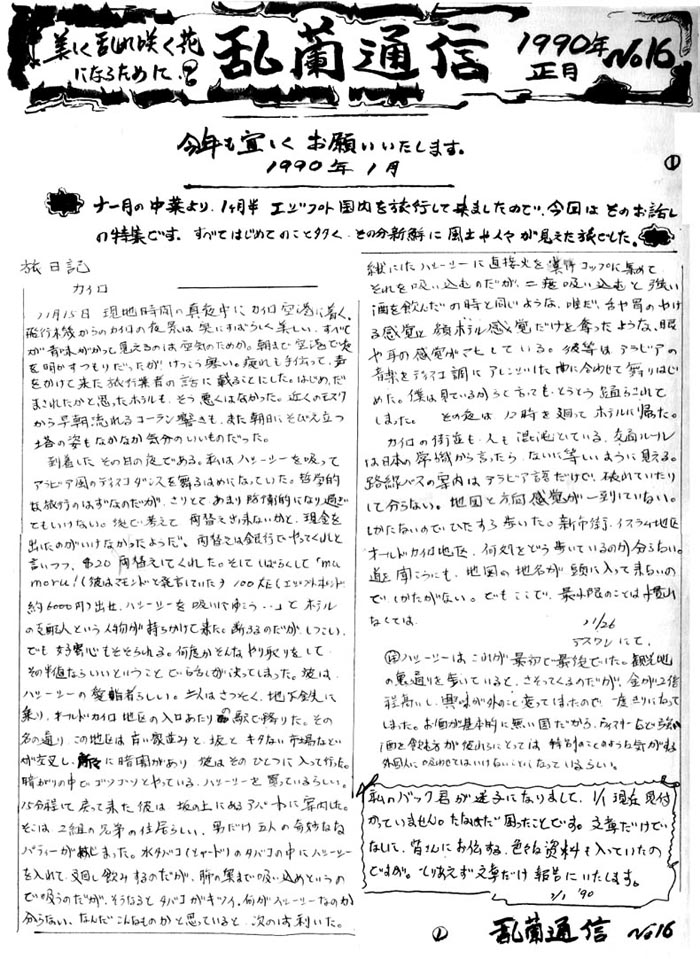 美しく乱れ咲く花
になるために!
乱蘭通信
1990年
正月
No16
今年も宜しくお願いいたします。
1990年1月
①
十一月の中葉より、1ヶ月半 エジプト国内を旅行して来ましたので、今回はそのお話し
の特集です。すべてはじめてのこと多く、その分新鮮に風土や人々が見えた旅でした。
旅日記
カイロ
11月15日 現地時間の真夜中にカイロ空港に着く。
飛行機からのカイロの夜景は実にすばらしく美しい。すべて
が青味がかって見えるのは空気のためか。朝まで空港で夜
を明かすつもりだったが、けっこう寒い。疲れも手伝って、声
をかけて来た旅行業者の話に載ることにした。はじめ、だ
まされたかと思ったホテルも、そう悪くはなかった。近くのモスク
から早朝流れるコーランの響きも、また朝日にそびえ立つ
塔の姿もなかなか気分のいいものだった。
到着したその日の夜である。私はハシーシーを吸って
アラビア風のディスコダンスを舞るはめになっていた。哲学的
な旅行のはずなのだが、さりとてあまり防衛的になり過ぎ
てもいけない。後で考えて 両替え出来ないかと、現金を
出したのがいけなかったようだ。両替えは銀行でやってくれと
言いつつ、$20両替えしてくれた。そしてしばらくして「mu
moru!(彼はマモンドと発音していた) 100LE(エジプトポンド、
約6000円)出せ、ハシーシーを吸いにゆこう…」とホテル
の支配人という人物が持ちかけて来た。断るのだが、しつこい。
でも好奇心もそそられる。何度かそんなやり取りをして
その半値ならいいということで話しが決ってしまった。彼は、
ハシーシーの愛輸者らしい。二人はさっそく、地下鉄に
乗り、オールドカイロ地区の入口あたりの駅で降りた。その
名の通り、この地区は古い家並みと、坂とキタない市場などい
が交叉し、所々に暗闇があり 彼はそのひとつに入って行った。
暗がりの中で、ゴソゴソとやっている。ハシーシーを買っているらしい。
15分程して戻って来た彼は 坂の上にあるアパートに案内した。
そこは2組の兄弟の住居らしい、男だけ五人の奇妙なる
パティーが始まった。水タバコ(シャードリ)のタバコの中にハシーシー
を入れて、交回し飲みするのだが、肺の奥まで吸い込めというの
で吸うのだが、そうなるとタバコがキツイ。何がハシーシーなのか
分らない、なんだこんなものかと思っていると、次のは利いた。
にしたハシーシーに直接火を コップに集めて
それを吸い込むのだが、二度吸い込むと 強い
酒を飲んだの時と同じような、唯だ、舌や胃のやけ
る感覚と 感覚だけを奪ったような、眼
や耳の感覚が している。彼等は、アラビアの
音楽をディスコ調にアレンジした曲に合わせて舞りはじ
めた。僕は見ているからと言っても、とうとう踊らされて
しまった。 その夜は12時を廻ってホテルに帰った。
カイロの街並も、人も混沌としている。交通ルール
は日本の常識から言ったら、ないに等しいように見える。
路線バスの案内はアラビア語だけで、破れていたり
して分らない。地図と方向感覚が一致していない。
しかたないのでひたすら歩いた。新市街、イスラム地区
オールドカイロ地区、何処をどう歩いているのか分らない。
道を聞こうにも、地図の地名が頭に入って来ないの
で、しかたがない。でもここで、最小限のことは慣れ
なくては。 11/26
アスワンにて。
ハシーシーはこれが最初で最後でした。観光地
の裏通りを歩いていると、さそってくるのだが、金が2倍
程高いし、興味が外のことに変ってしまたので、一度きりになって
しまった。お酒が基本的に無い国だから、ディスナーなどで強い
酒を飲む方が彼れらにとっては 特別のことのような気がする。
外国人に吸わせてはいけないことになっているらしい。
私のバック君が迷子になりまして、1/1 現在 見付
かっていません。たいへんだ困ったことです。文章だけで
なしに、皆さんにお伝する、色々な資料も入っていたの
ですが。とりあえず文章だけ 報告にいたします。
1/1 '90
①
乱蘭通信 No16